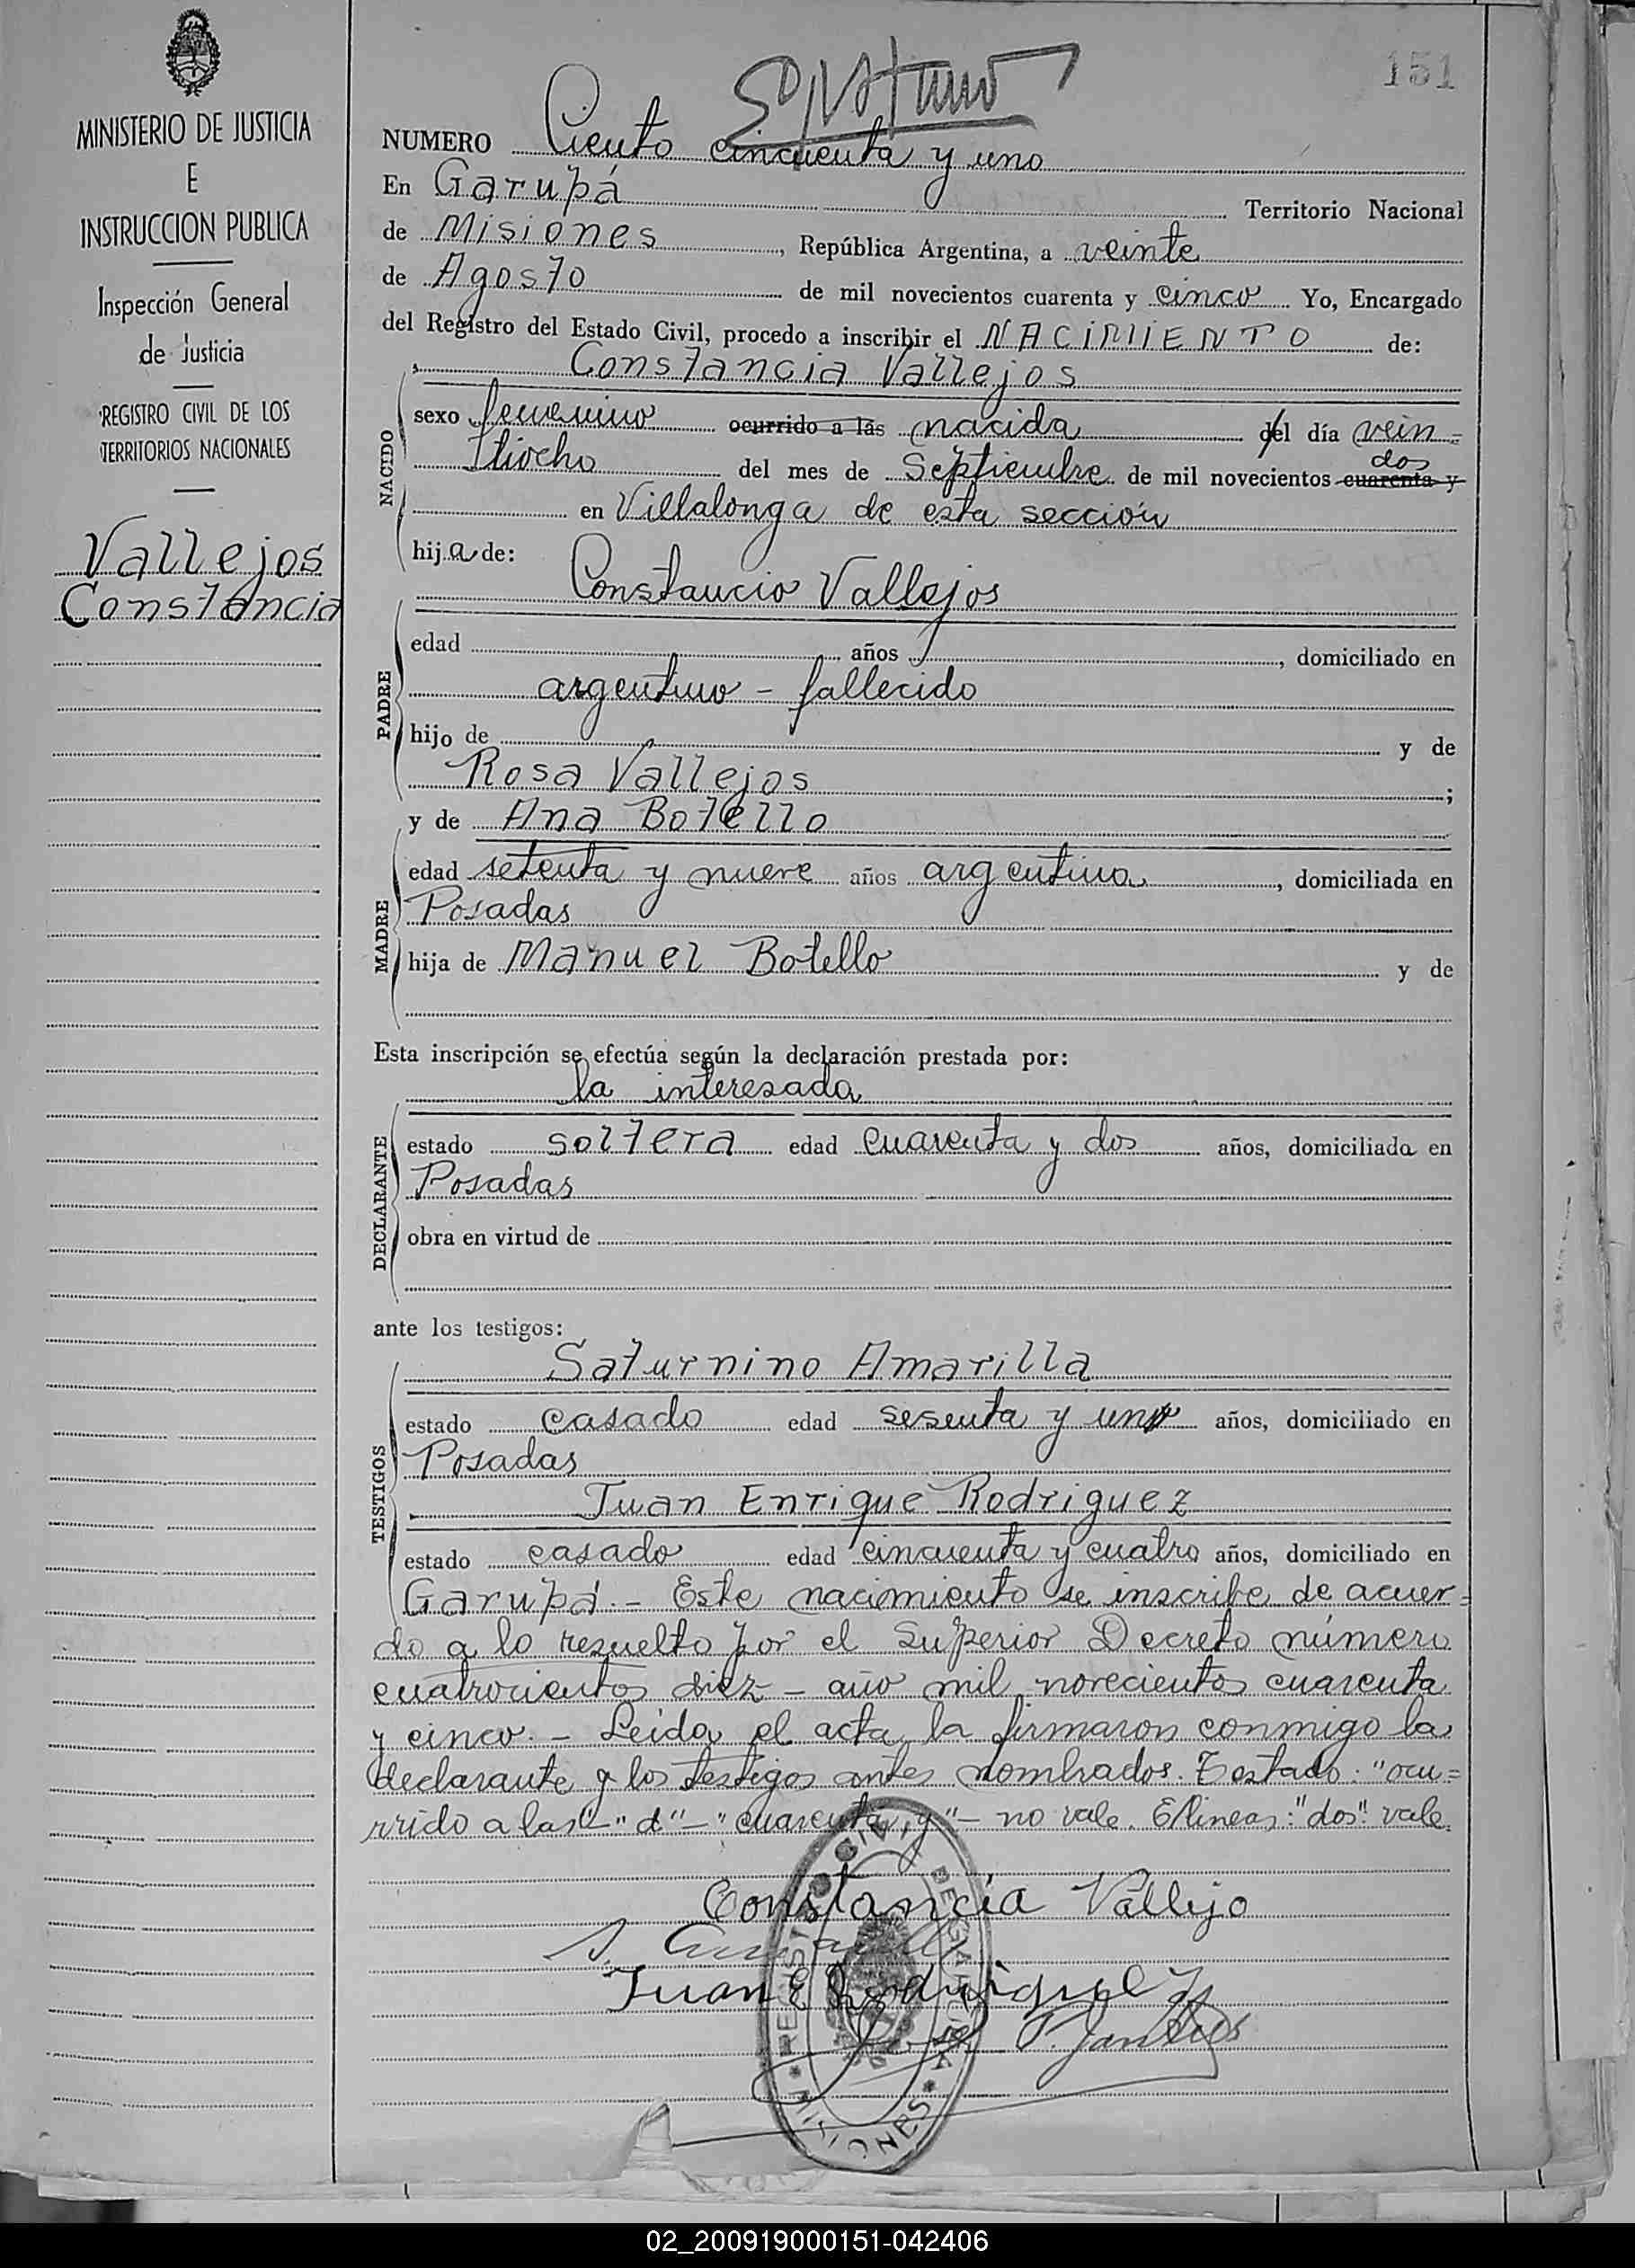 151
MINISTERIO DE JUSTICIA
E
INSTRUCCION PUBLICA
Inspección General
de Justicia
REGISTRO CIVIL DE LOS
TERRITORIOS NACIONALES
Vallejos
Constancia
NUMERO Ciento cincuenta y uno
En Garupá Territorio Nacional
de Misiones, República Argentina, a veinte
de Agosto de mil novecientos cuarenta y cinco Yo, Encargado
del Registro del Estado Civil, procedo a inscribir el NACIMIENTO de:
Constancia Vallejos
NACIDO
sexo femenino ocurrido a las nacida del día vein=
tiocho del mes de Septiembre de mil novecientos cuarenta y dos
en Villalonga de esta sección
hija de:
Constancio Vallejos
PADRE
edad años, domiciliado en
argentino - fallecido
hijo de y de
Rosa Vallejos;
y de Ana Botello
MADRE
edad setenta y nueve años argentina, domiciliada en
Posadas
hija de Manuel Botello y de
Esta inscripción se efectúa según la declaración prestada por:
la interesada
DECLARANTE
estado soltera edad cuarenta y dos años, domiciliada en
Posadas
obra en virtud de
ante los testigos:
Saturnino Amarilla
TESTIGOS
estado casado edad sesenta y uno años, domiciliado en
Posadas
Juan Enrique Rodriguez
estado casado edad cincuenta y cuatro años, domiciliado en
Garupá.- Este nacimiento se inscribe de acuer=
do a lo resuelto por el Superior Decreto número
cuatrocientos diez - año mil novecientos cuarenta
y cinco. - Leida el acta la firmaron conmigo la
declarante y los testigos antes nombrados. Testado: "ocu=
rrido a las"-"d"-"cuarenta y"- no vale. E/lineas: "dos": vale.
Constancia Vallejo
S. Amarilla
Juan E Rodriguez
REGISTRO CIVIL
MISIONES
02_200919000151-042406